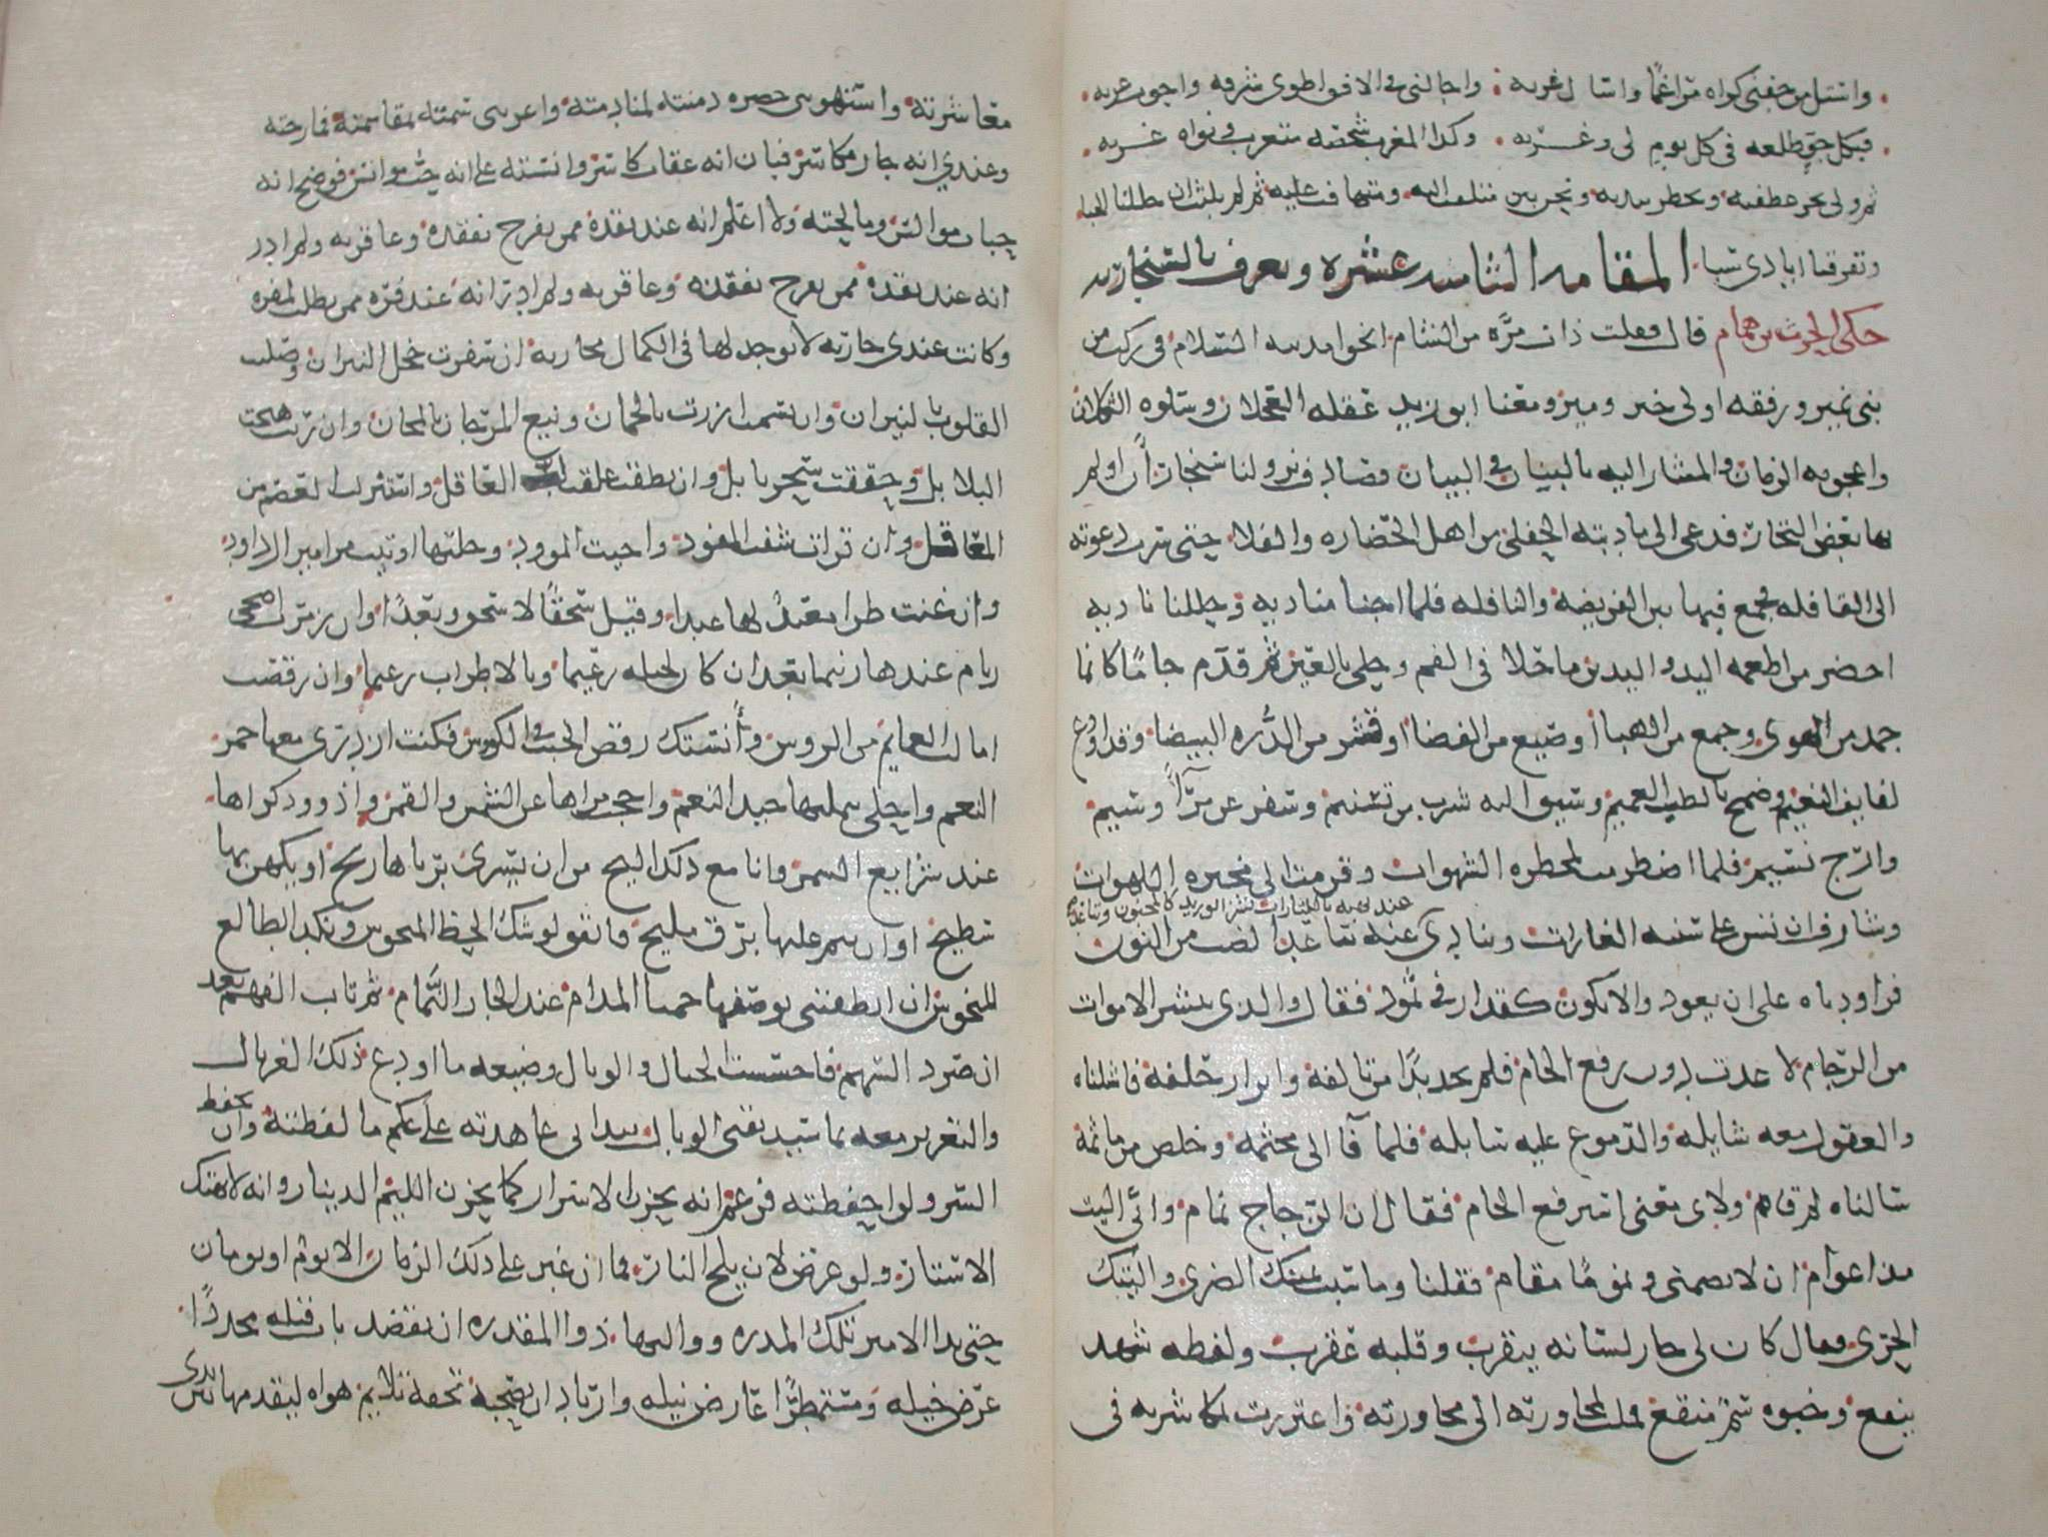 واستل من جفني كراه مراغما واسال غربه واجالني في الافق اطوي شرقه واجوب غربه
فبكل جو طلعة في كل يوم لي وغربه وكذا المغرب شخصه متغرب ونواه غربه
ثم ولى يجر عطفيه ويخطر بيديه ونحن بين متلفت اليه ومتهافت عليه ثم لم يلبث ان حللنا الحبا
وتفرقنا ايادي سبا المقامة الثامنة عشره وتعرف بالسنجارية
حكى الحرث بن همام قال قفلت ذات مره من الشام انحو مدينة السلام في ركب من
بني نمير ورفقه اولي خير ومير ومعنا ابو زيد عقلة العجلان وسلوة الثكلان
واعجوبة الزمان والمشار اليه بالبنان في البيان فصادف نزولنا سنجار ان اولم
بها بعض التجار فدعى الى مادبته الجفلى من اهل الحضاره والفلا حتى سرت دعوته
الى القافله وجمع فيها بين الفريضة والنافله فلما اجبنا مناديه وحللنا ناديه
احضر من اطعمة اليد واليدين ما حلا في الفم وحلي بالعين ثم قدم جاما كانما
جمد من الهوى وجمع من الهبا او صيغ من الفضا او قشر من الدره البيضا وقد اودع
لفايف النعيم وضمخ بالطيب العميم وسيق اليه شرب من تسنيم وسفر عن مرأى وسيم
وارج نسيم فلما اضطرمت بمحضره الشهوات وقرمت الى مخبره اللهوات
وشارف ان تشن على سربه الغارات وينادى عند نهبه يا للثارات نشز ابو زيد كالمجنون وتباعد
عنه تباعد الضب من النون
فراودناه على ان يعود والا يكون كقدار في ثمود فقال والذي ينشر الاموات
من الرجام لا عدت دون رفع الجام فلم نجد بدا من تالفه وابرار حلفه فاشلناه
والعقول معه شايله والدموع عليه سايله فلما فآ الى مجثمه وخلص من ماثمه
سالناه لم قام ولاي معنى استرفع الجام فقال ان الزجاج نمام واني اليت
مذ اعوام ان لا يضمني ونموما مقام فقلنا وما سبب يمينك الصرى واليتك
الحرى فقال كان لي جار لسانه يتقرب وقلبه عقرب ولفظه شهد
ينقع وخبوه سم منقع فملت لمجاورته الى محاورته واغتررت بمكاشرته في
معاشرته واستهوتني خضره دمنته لمنادمته واغرتني سمته بمقاسمته فمازجته
وعندي انه جار مكاسر فبان انه عقاب كاسر وانسته على انه حب موانس فوضح انه
حباب موالس ومالحته ولا اعلم انه عند نقده ممن يفرح بفقده وعاقرته ولم ادر
انه عند نقده ممن يفرح بفقده وعاقرته ولم ادر انه عند فره ممن يطرب لمفره
وكانت عندي جاريه لا يوجد لها في الكمال مجاريه ان سفرت خجل النيران وصليت
القلوب بالنيران وان بسمت ازرت بالجمان وبيع المرجان بالمجان وان رنت هيجت
البلابل وحققت سحر بابل وان نطقت عقلت لب العاقل واستنزلت العصم من
المعاقل وان قرات شفت المفود واحيت الموود وخلتها اوتيت مزامير ال داود
وان غنت ظل معبد لها عبدا وقيل سحقا لاسحق وبعدا وان زمرت اضحى
زنام عندها زنيما بعد ان كان لجيله زعيما وبالاطراب زعيما وان رقصت
امالت العمايم عن الروس وأنستك رقص الحبب في الكووس فكنت ازدري معها حمر
النعم واحلي بتمليها جيد النعم واحجب مراها عن الشمس والقمر واذود ذكراها
عند شرايع السمر وانا مع ذلك اليح من ان تسري برياها ريح او يكهن بها
سطيح او ان ينم عليها برق مليح فاتفق لوشك الحظ المنحوس ونكد الطالع
المنحوس ان انطقتني بوصفها حميا المدام عند الجار النمام ثم ثاب الفهم بعد
ان صرد السهم فاحسست الخبال والوبال وضيعة ما اودع ذلك الغربال
والتغرير معه بما سيد بقى الوبال بيد اني عاهدته على عكم ما لفظته وان يحفظ
السر ولو احفظته فزعم انه يخزن الاسرار كما يخزن اللييم الدينار وانه لا يهتك
الاستار ولو عرض لان يلج النار فما ان غبر على ذلك الزمان الا يوم او يومان
حتى بدا لامير تلك المدره وواليها ذو المقدره ان يقصد باب قيله مجددا
عرض خيله ومستمطرا عارض نيله وارتاد ان يصحبه تحفة تلايم هواه ليقدمها بين يدي